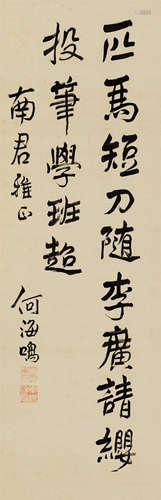 匹馬短刀隨李廣請纓
投筆學班超
南君雅正
何海鳴